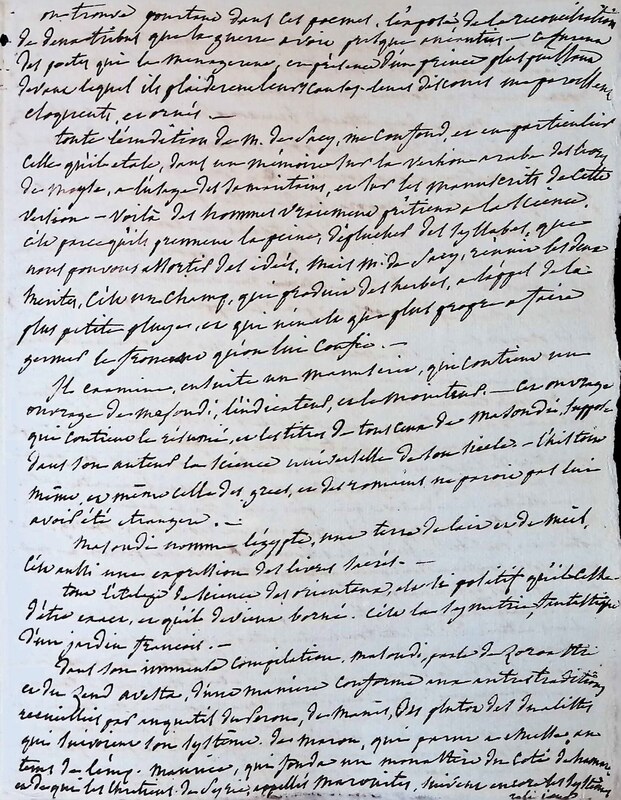 on trouve pourtant dans ces poemes, l'exposé de la reconciliation
de deux tribus que la guerre avoit presque anéanties — ce furent
des poetes qui la menagerent, en présence d'un prince plus puissant
devant lequel ils plaiderent leurs causes. leurs discours me paroissent
eloquents, et ornés. —
toute l'érudition de m. de sacy, me confond, et en particulier
celle qu'il etale, dans un mémoire sur la version arabe des livres
de moyse, a l'usage des samaritains, et sur les manuscrits de cette
version — voilà des hommes vraiment prétieux a la science,
c'est parce qu'ils prennent la peine, d'eplucher des syllabes, que
nous pouvons assortir des idées, mais m. de sacy, réunit les deux
merites, c'est un champ, qui produit des herbes, a l'appel de la
plus petite pluye, et qui n'en est que plus propre a faire
germer le froment qu'on lui confie. —
Il examine, ensuite un manuscrit, qui contient un
ouvrage de masoudi, l'indicateur, et le moniteur. — cet ouvrage
qui contient le résumé, et les titres de tous ceux de masoudi, suppose
dans son auteur la science universelle de son siecle — l'histoire
même, et même celle des grecs, et des romains ne paroit pas lui
avoir été etrangere. —
Masoudi nomme l'égypte, une terre de lait et de miel,
c'est aussi une expression des livres sacrés. —
tout l'etalage de science des orientaux, a le positif qu'il cesse
d'être exact, et qu'il devient borné. c'est la symetrie, fantastique
d'un jardin francois. —
dans son immense compilation, masoudi, parle de zoroastre
et du zend avesta, d'une maniere conforme aux autres traditions
recueillies par anquetil du perron, de manès, des
qui suivirent son systême. de maron, qui parut a emesse, au
tems de l'emp. maurice, qui fonda un monastere du coté de hama
et de que les chretiens de syrie, appellés maronites, suivent encore les systêmes